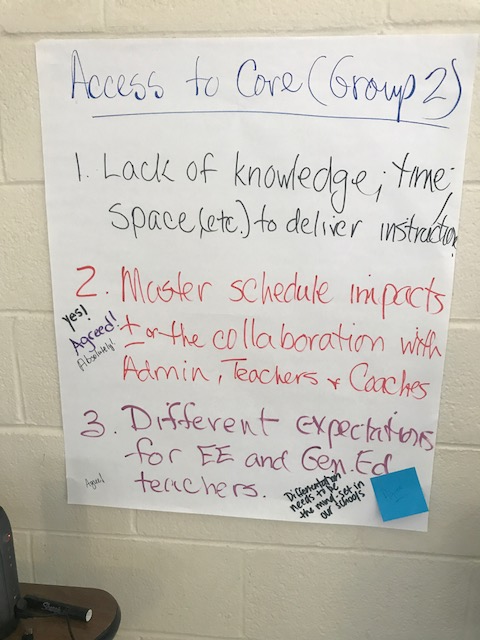 Access to Core (Group 2)
1. Lack of knowledge; time,
space (etc.) to deliver instruction
2. Master schedule impacts
± or the collaboration with
Admin, Teachers + Coaches
yes!
Agreed!
Absolutely!
3. Different expectations
for EE and Gen. Ed
teachers.
Agree!
Differentiation
needs to be
the mind-set in
our schools
Sharpie